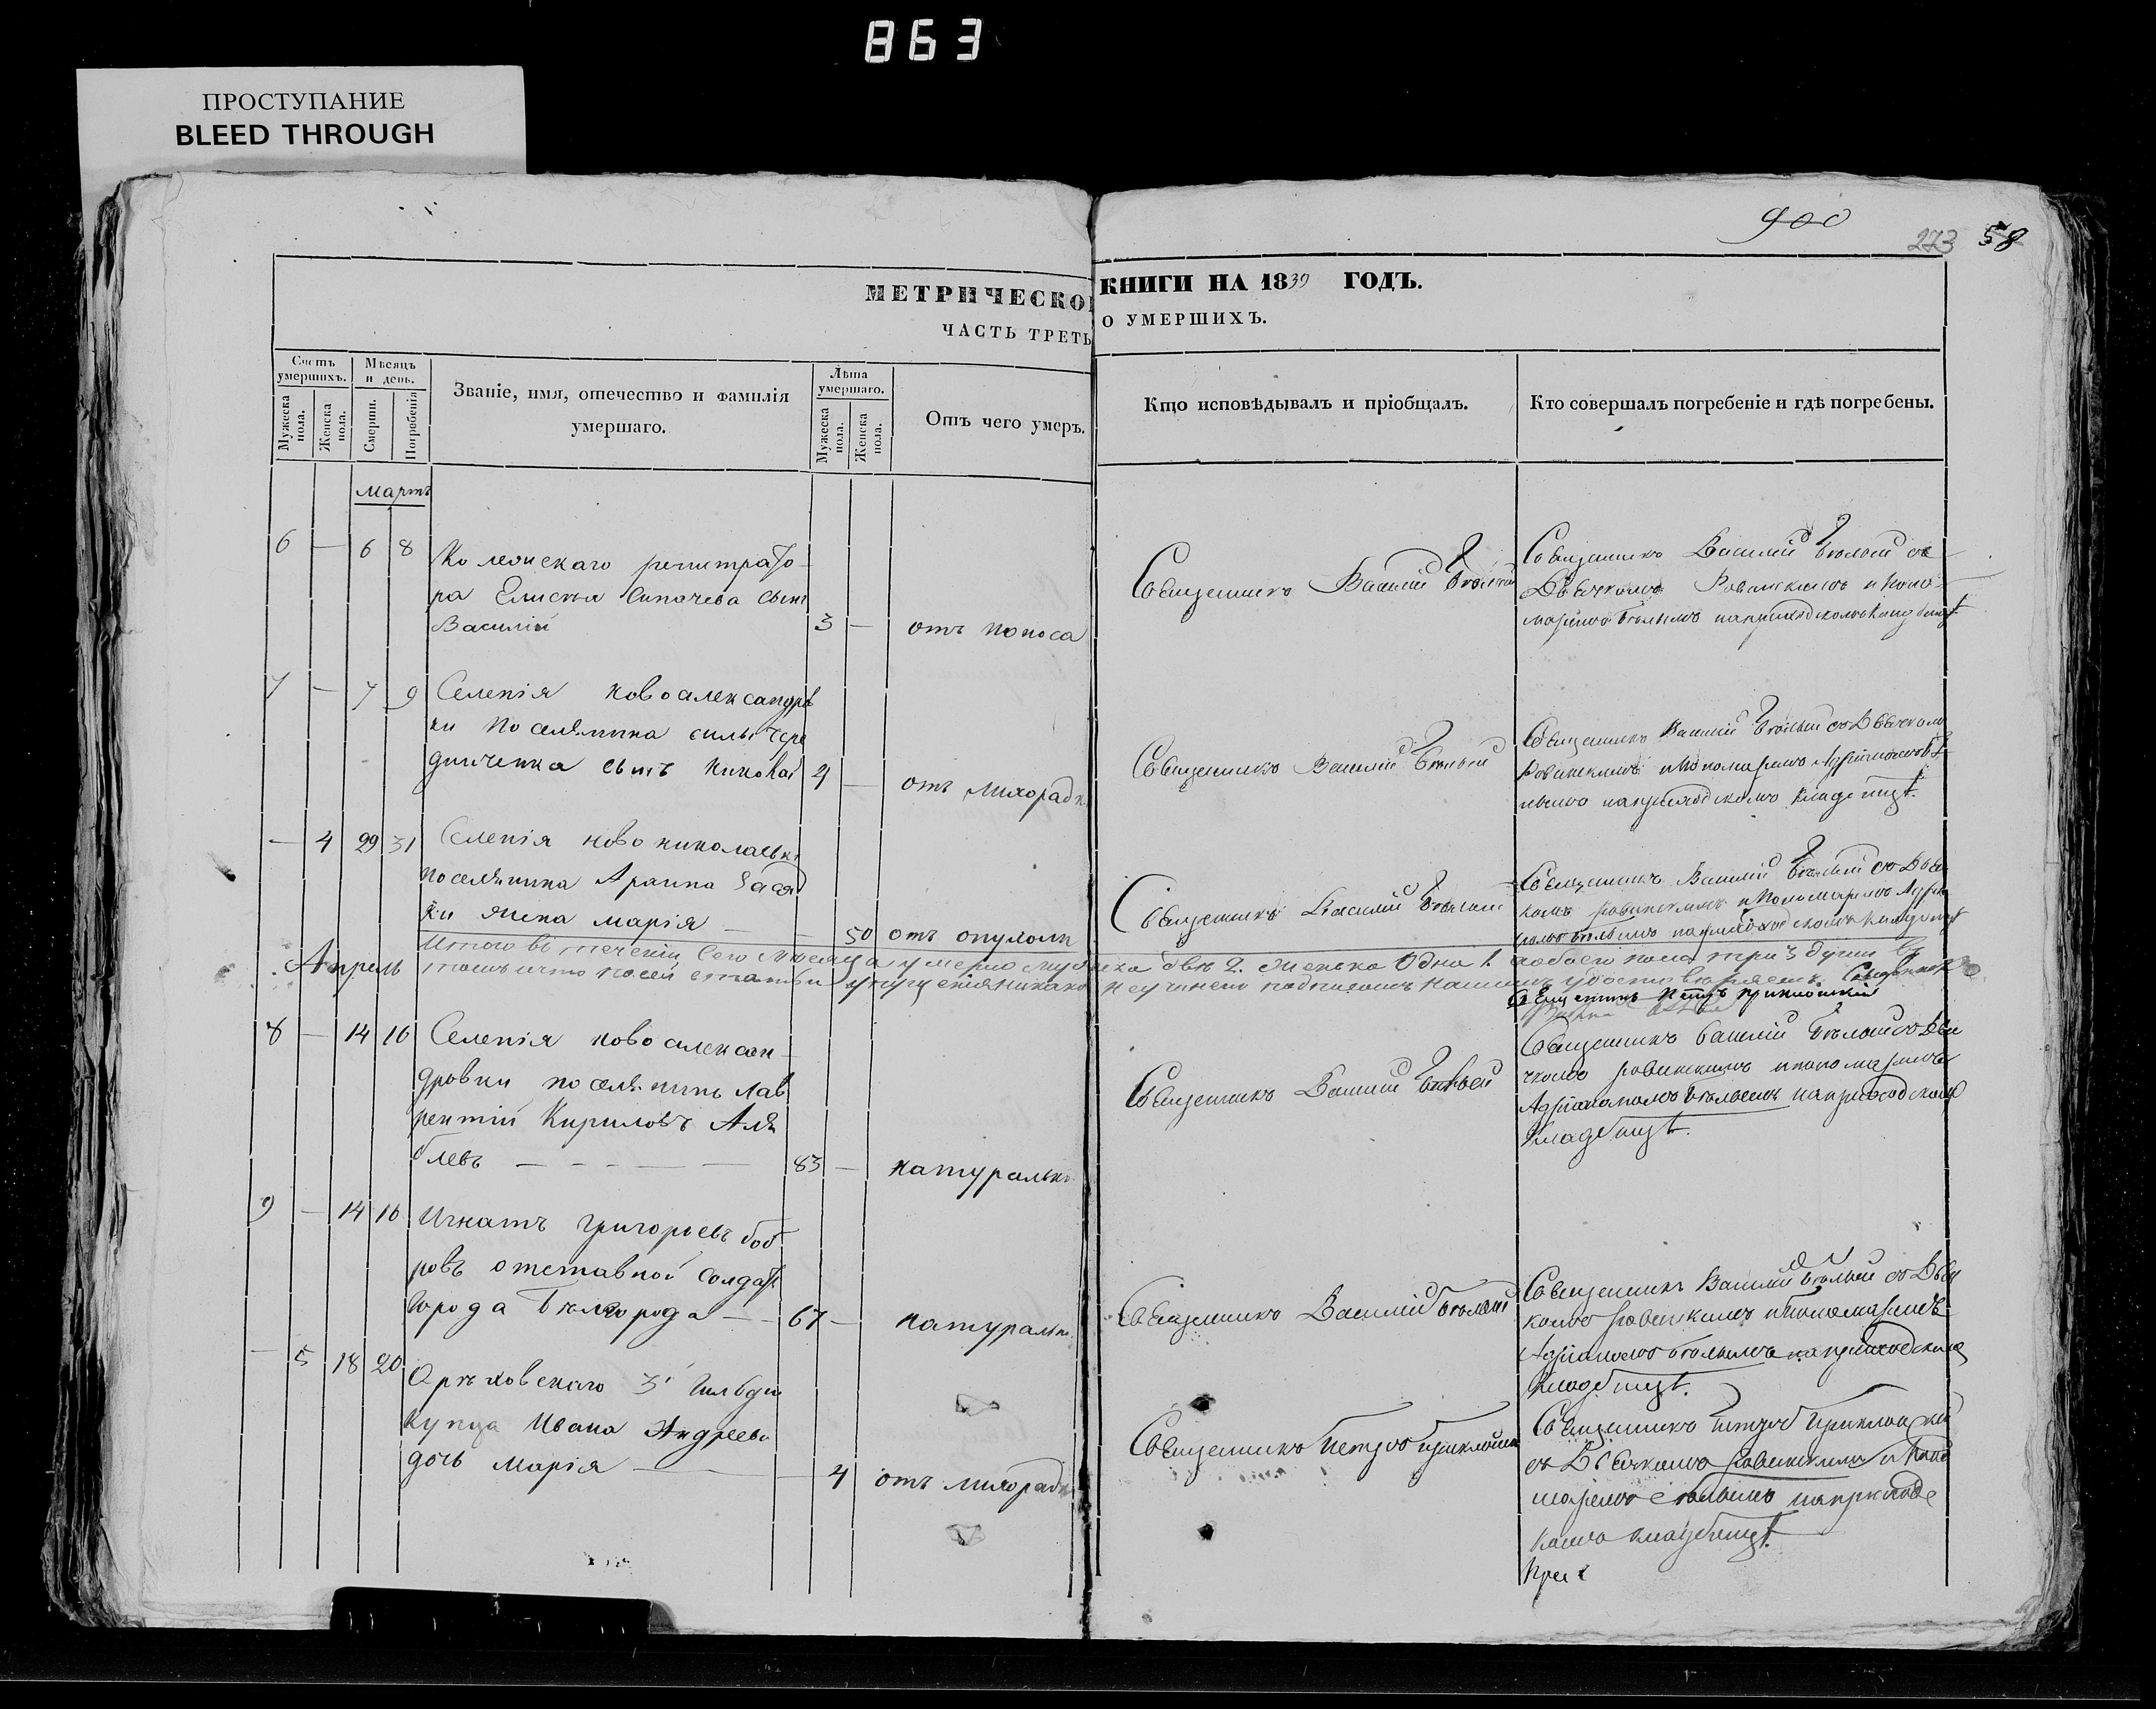 863
ПРОСТУПАНИЕ
BLEED THROUGH
900
273 58
МЕТРИЧЕСКО КНИГИ НА 1839 ГОДЪ.
ЧАСТЬ ТРЕТЬ О УМЕРШИХЪ.
Счетъ умершихъ.
Мужеска пола.
Женска пола.
Мѣсяцъ и день.
Смерти.
Погребенія
Званіе, имя, отечество и фамилія умершаго.
Лѣта умершаго.
Мужеска пола.
Женска пола.
Отъ чего умеръ.
Кто исповѣдывалъ и пріобщалъ.
Кто совершалъ погребеніе и гдѣ погребены.
Мартъ
6 — 6 8
Колежскаго регистрато-
ра Елисѣя сына
Василій 3 — отъ поноса
Священникъ Василій Бѣлый
Священникъ Василій Бѣлый съ
Дьячкомъ Ровинскимъ и поно-
маремъ Бѣлымъ наприходскомъ кладбищѣ
7 — 7 9
Селенія новоалександров
ки поселянина силы Чере
дниченка сынъ Николай 4 — отъ лихорадк
Священникъ Василій Бѣлый
Священникъ Василій Бѣлый съ Дьячкомъ
Ровинскимъ и Пономаремъ
наприходскомъ кладбищѣ.
— 4 29 31
Селенія новониколаевк
поселянина
жена марія — 50 отъ опухоли
Священникъ Василій Бѣлый
Священникъ Василій Бѣлый съ Дьяч
комъ Ровинскимъ и Пономаремъ
Бѣлымъ наприходскомъ кладбищѣ
Итого въ теченіи сего мѣсяца умерло мужеска двѣ 2. женска одна 1. а обоего пола три 3 души въ
томъ и что посей статьи упущенія никако неучинено подписомъ нашимъ удостовѣряемъ. Священникъ
Священникъ Петръ
Апрель
8 — 14 16
Селенія новоалексан-
дровки поселянинъ Лав
рентій Кириловъ Аля
блевъ — 83 — натурально
Священникъ Василій Бѣлый
Священникъ Василій Бѣлый съ Дья
чкомъ Ровинскимъ и пономаремъ
Бѣлымъ наприходскомъ
кладбищѣ.
9 — 14 16
Игнатъ григорьевъ боб
ровъ отставной солдатъ
города Бѣлгорода — 67 — натурально
Священникъ Василій Бѣлый
Священникъ Василій Бѣлый съ Дьяч
комъ Ровинскимъ и Пономаремъ
Бѣлымъ наприходском
кладбищѣ.
— 5 18 20
Орѣховскаго 3 гильдіи
купца Ивана Андреева
дочь Марія — 4 отъ лихорадк
Священникъ Петръ
Священникъ Петръ
съ Дьячкомъ Ровинскимъ и Поно
маремъ Бѣлымъ наприход
скомъ кладбищѣ.